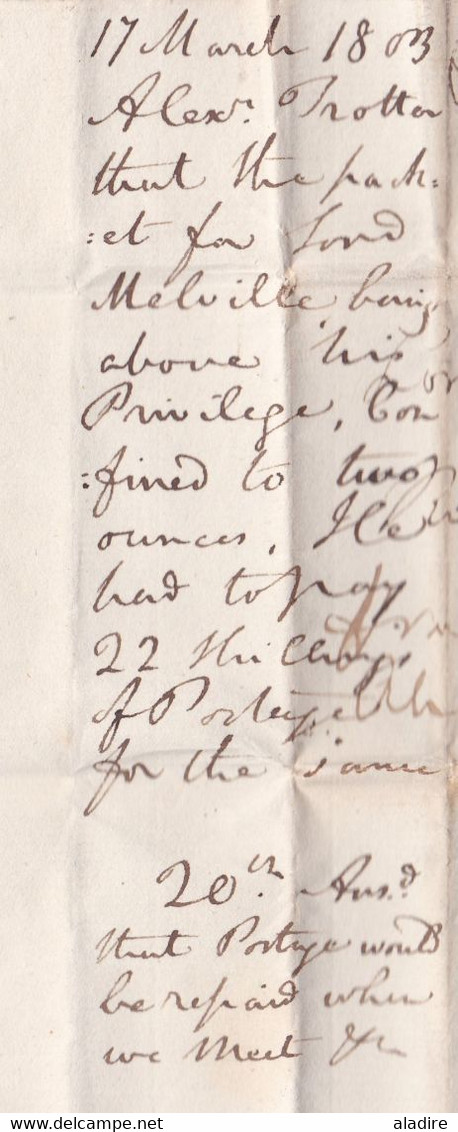 17 March 1803
Alexr. Trotter
that the pack:
:et for Lord
Melville being
above his
Privilege, Con
:fined to two
ounces, He
had to pay
22 Shillings
of Postage
for the same
20th. Ansd.
that Postage would
be repaid when
we meet &c
delcampe.net
aladire